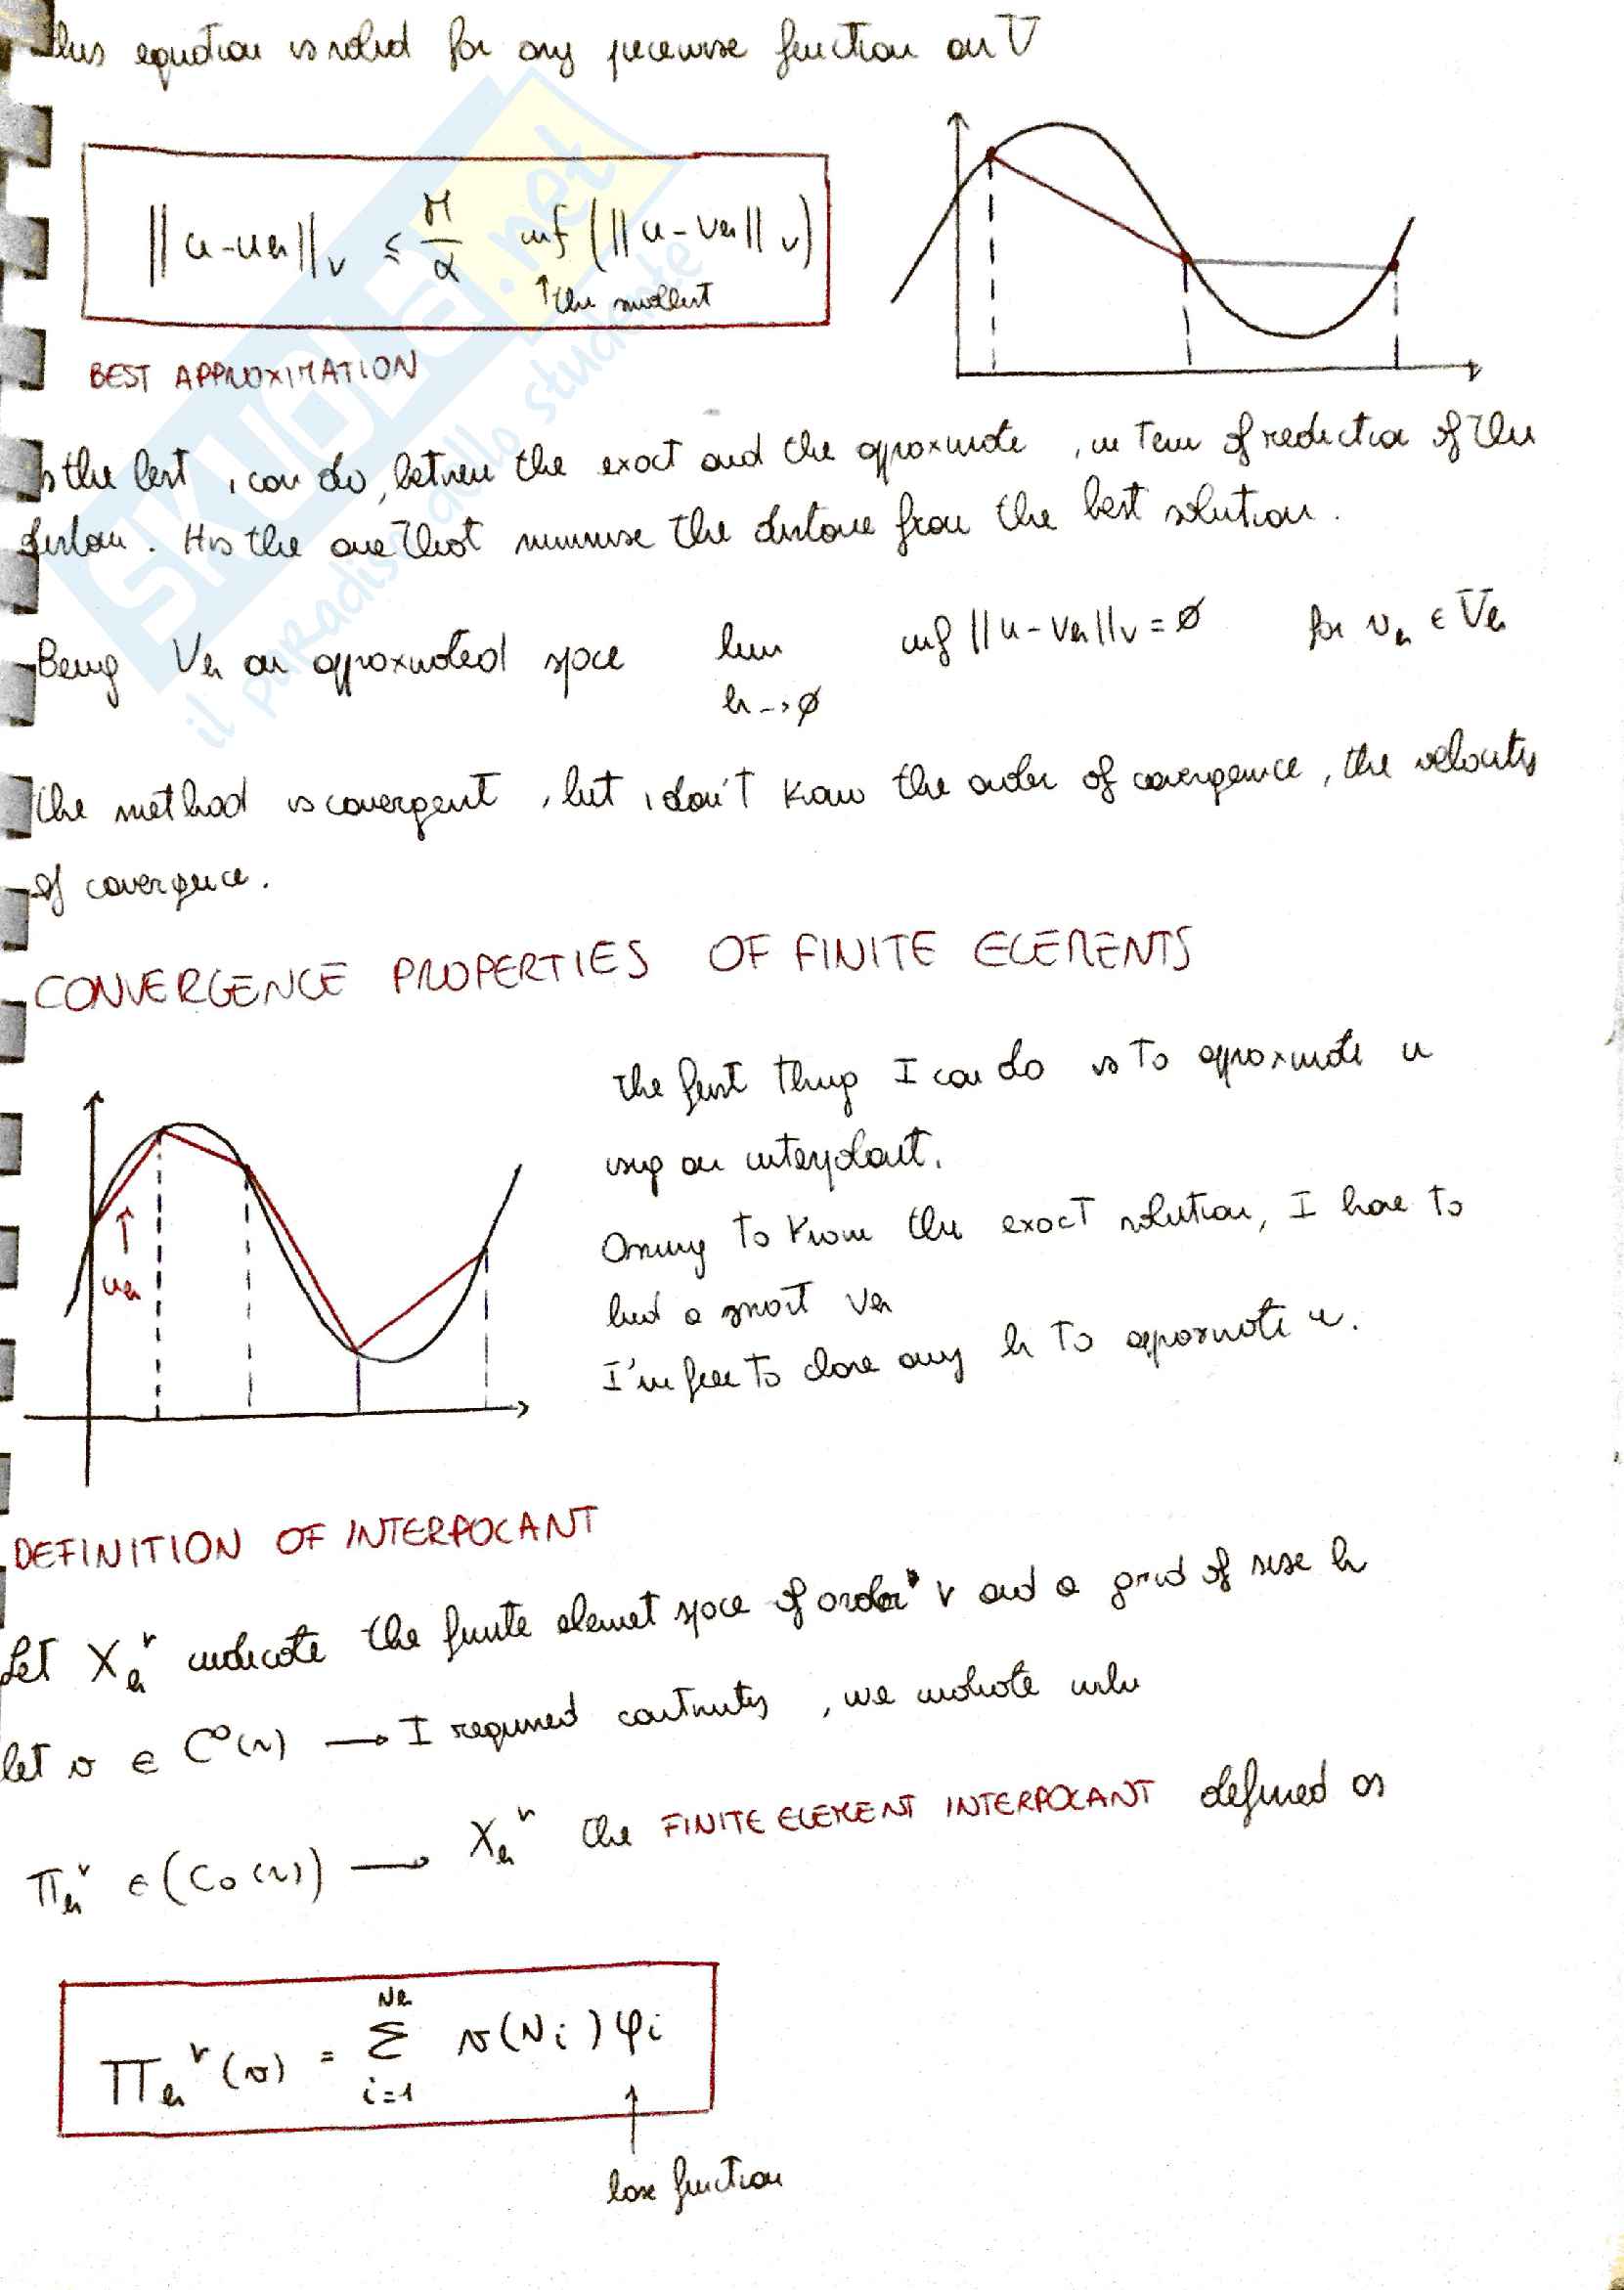 this equation is valid for any piecewise function on V
||u-uh||v ≤ M/α inf (||u-vh||v)
↑ the smallest
BEST APPROXIMATION
is the best, i can do, between the exact and the approximate, in term of reduction of the
distan. It is the one that minimise the distance from the best solution.
Being Vh an approximated space lim h→∅ inf ||u-vh||v = ∅ for vh ∈ Vh
the method is convergent, but i don't know the order of convergence, the velocity
of convergence.
CONVERGENCE PROPERTIES OF FINITE ELEMENTS
the first thing I can do is to approximate u
using an interpolant.
uh
to know the exact solution, I have to
find a smart vh
I'm free to chose any h to approximate u.
DEFINITION OF INTERPOLANT
Let Xh^r indicate the finite element space of order r and a grid of size h
let v ∈ C^0(Ω) → I required continuity, we indicate
Πh^r ∈ (C0(Ω)) → Xh^r the FINITE ELEMENT INTERPOLANT defined as
Πh^r(v) = Σ i=1 Nh v(Ni) φi
↑
base function
SKUOLA.net
il paradiso dello studente